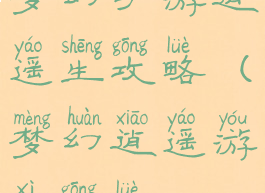 yáo shēng gōng lüè
遥生攻略（
mèng huàn xiāo yáo yóu
梦幻逍遥游
xì gōng lüè